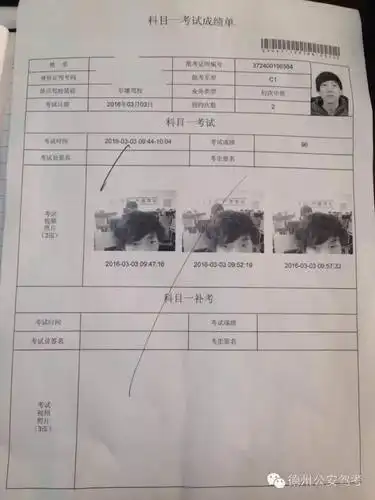 科目一考试成绩单
姓 名 准考证明编号 372400196564
身份证明号码 报考车型 C1
华雄驾校 业务类型 初次申领
考试日期 2016年03月03日 预约次数 2
科目一考试
考试时间 2016-03-03 09:44-10:04 考试成绩 96
考试员签名 考生签名
考试
视频
照片
(3张)
2016-03-03 09:47:16 2016-03-03 09:52:19 2016-03-03 09:57:32
科目一补考
考试时间 考试成绩
考试员签名 考生签名
考试
视频
照片
(3张)
德州公安驾考